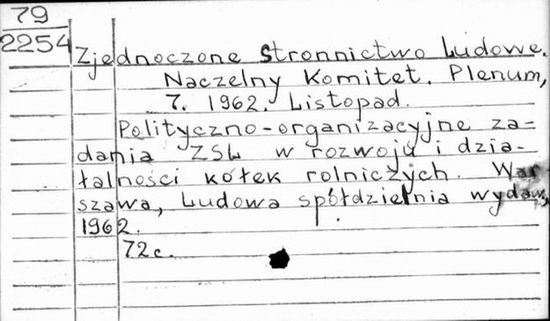 79
2254
Zjednoczone Stronnictwo Ludowe.
Naczelny Komitet. Plenum,
7. 1962. Listopad.
Polityczno-organizacyjne za-
dania ZSL w rozwoju i dzia-
łalności kółek rolniczych. War
szawa, Ludowa spółdzielnia wydaw,
1962.
72c.